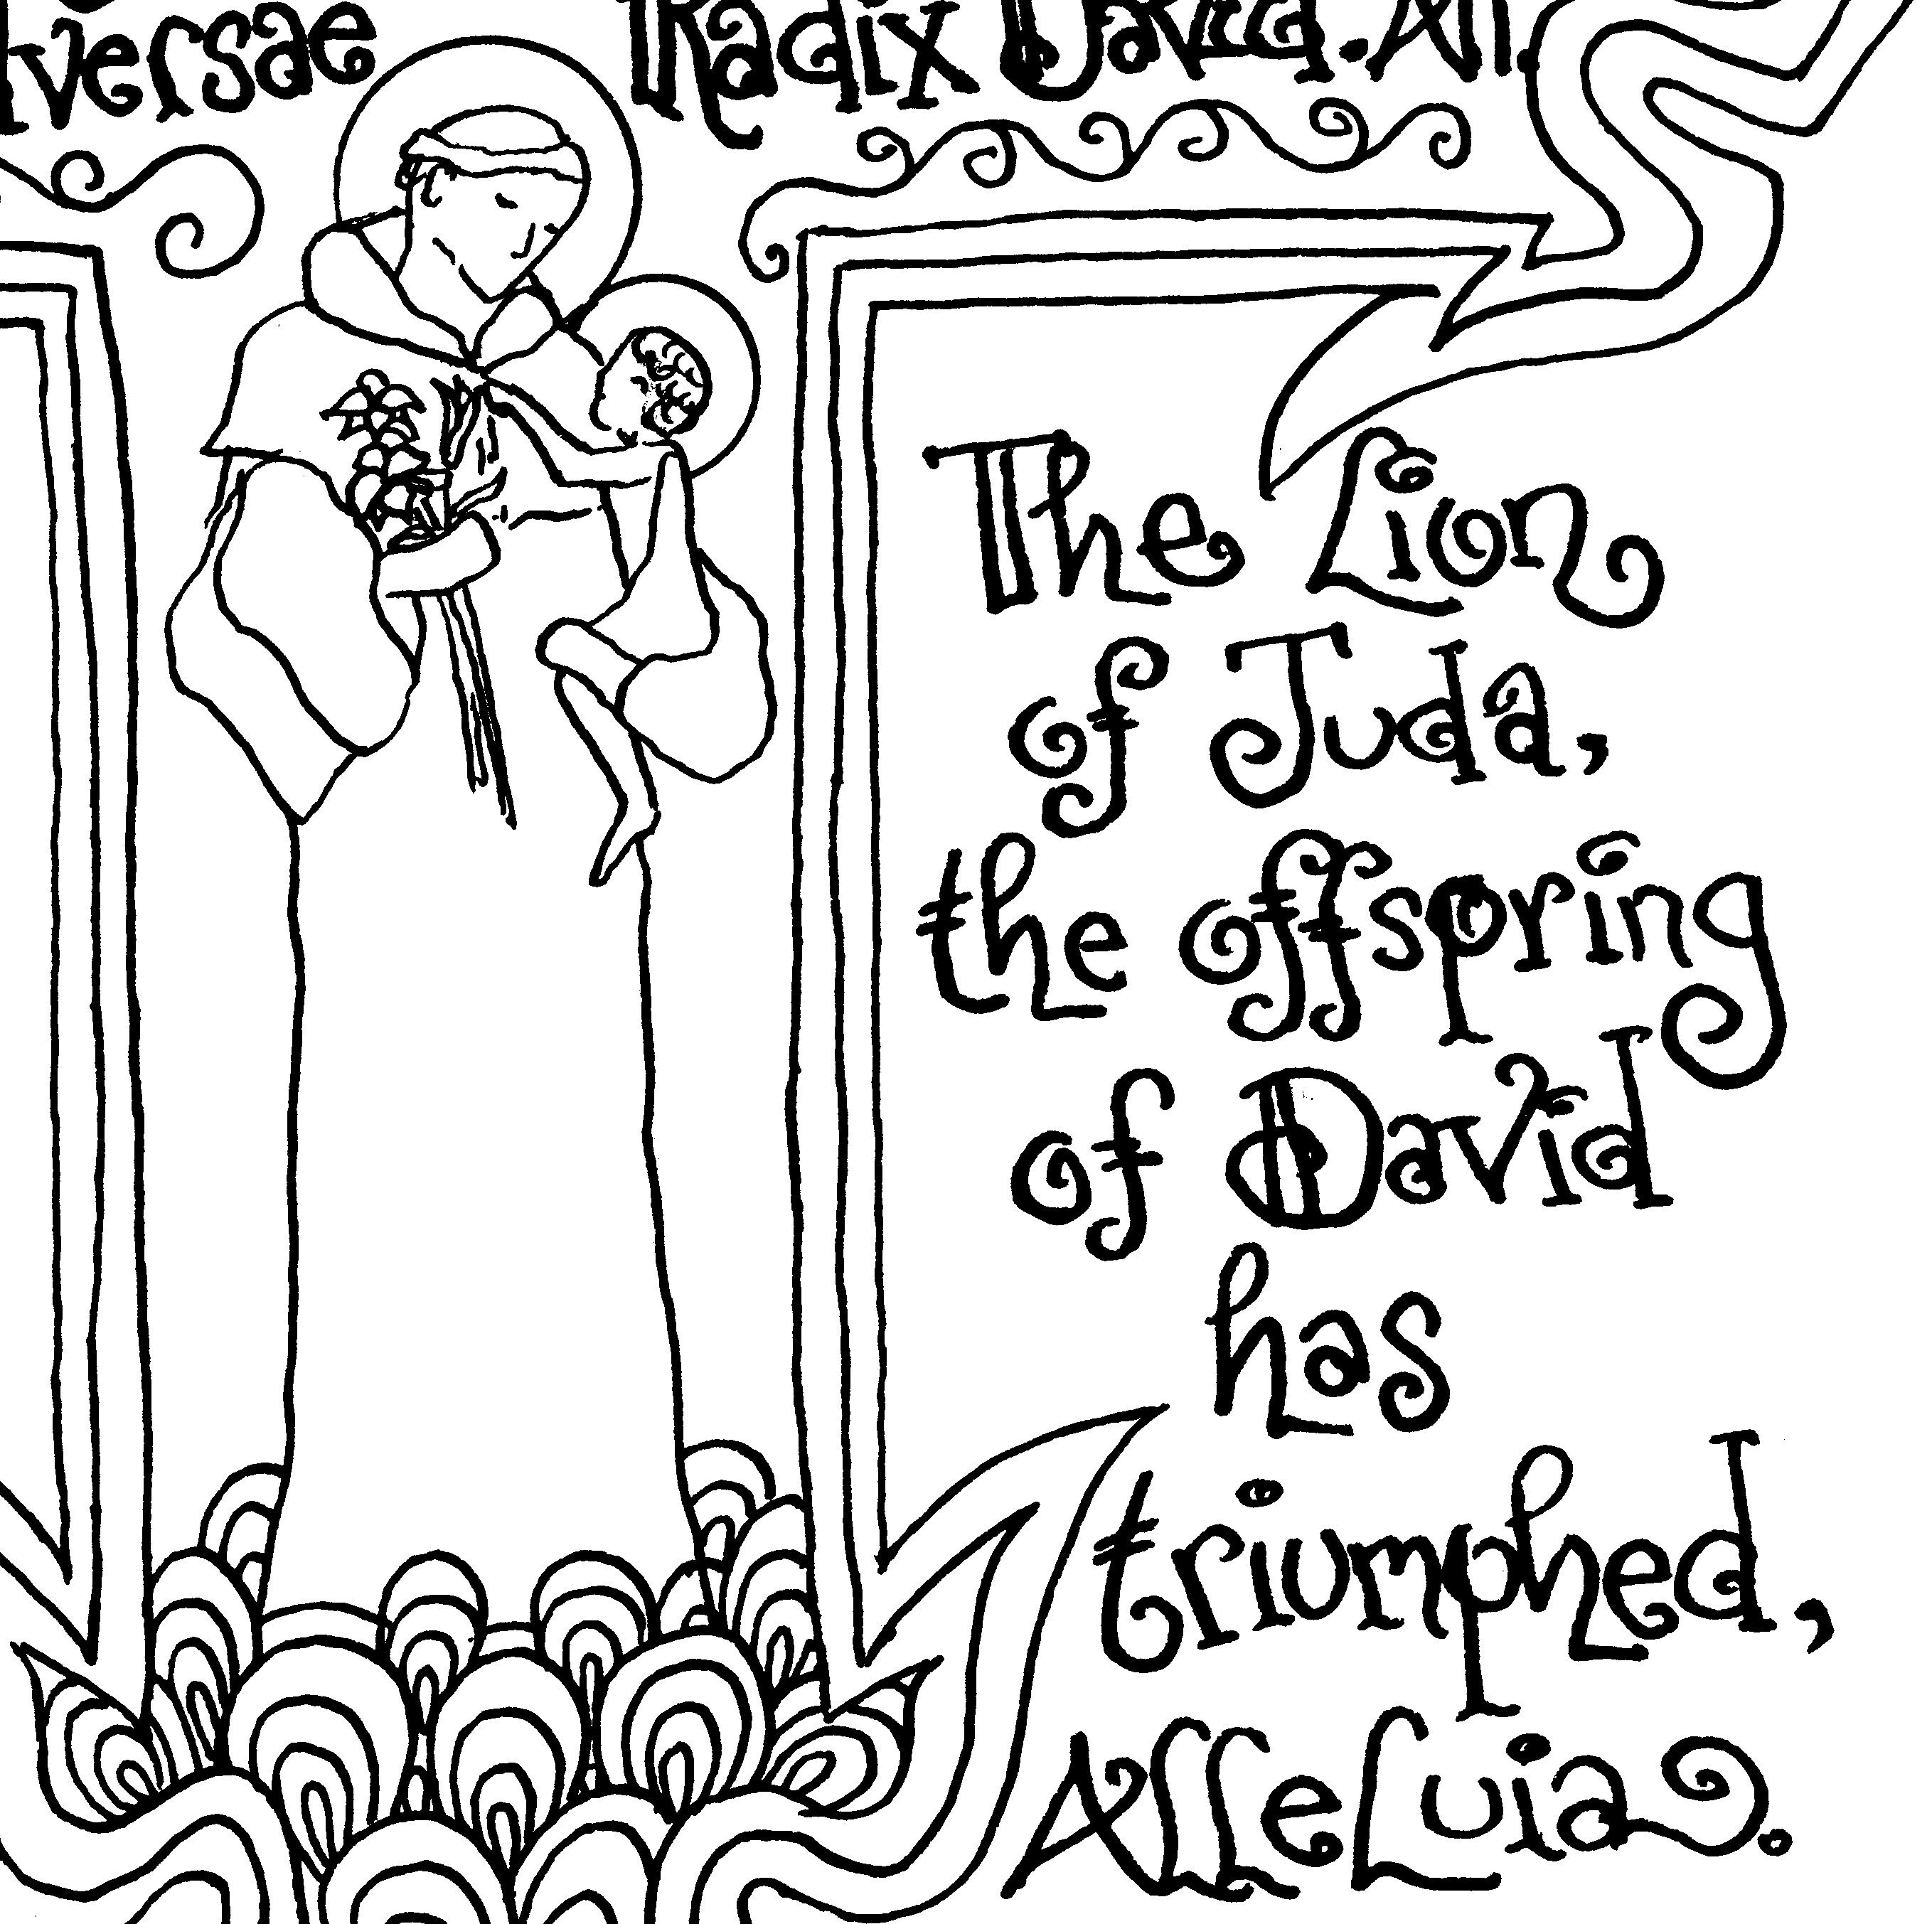 versae Radix David. All
The Lion
of Juda,
the offspring
of David
has
triumphed,
Alleluia.